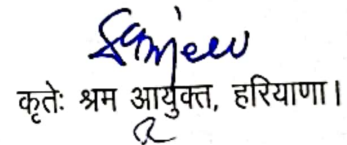 Sanjeev
कृतेः श्रम आयुक्त, हरियाणा।